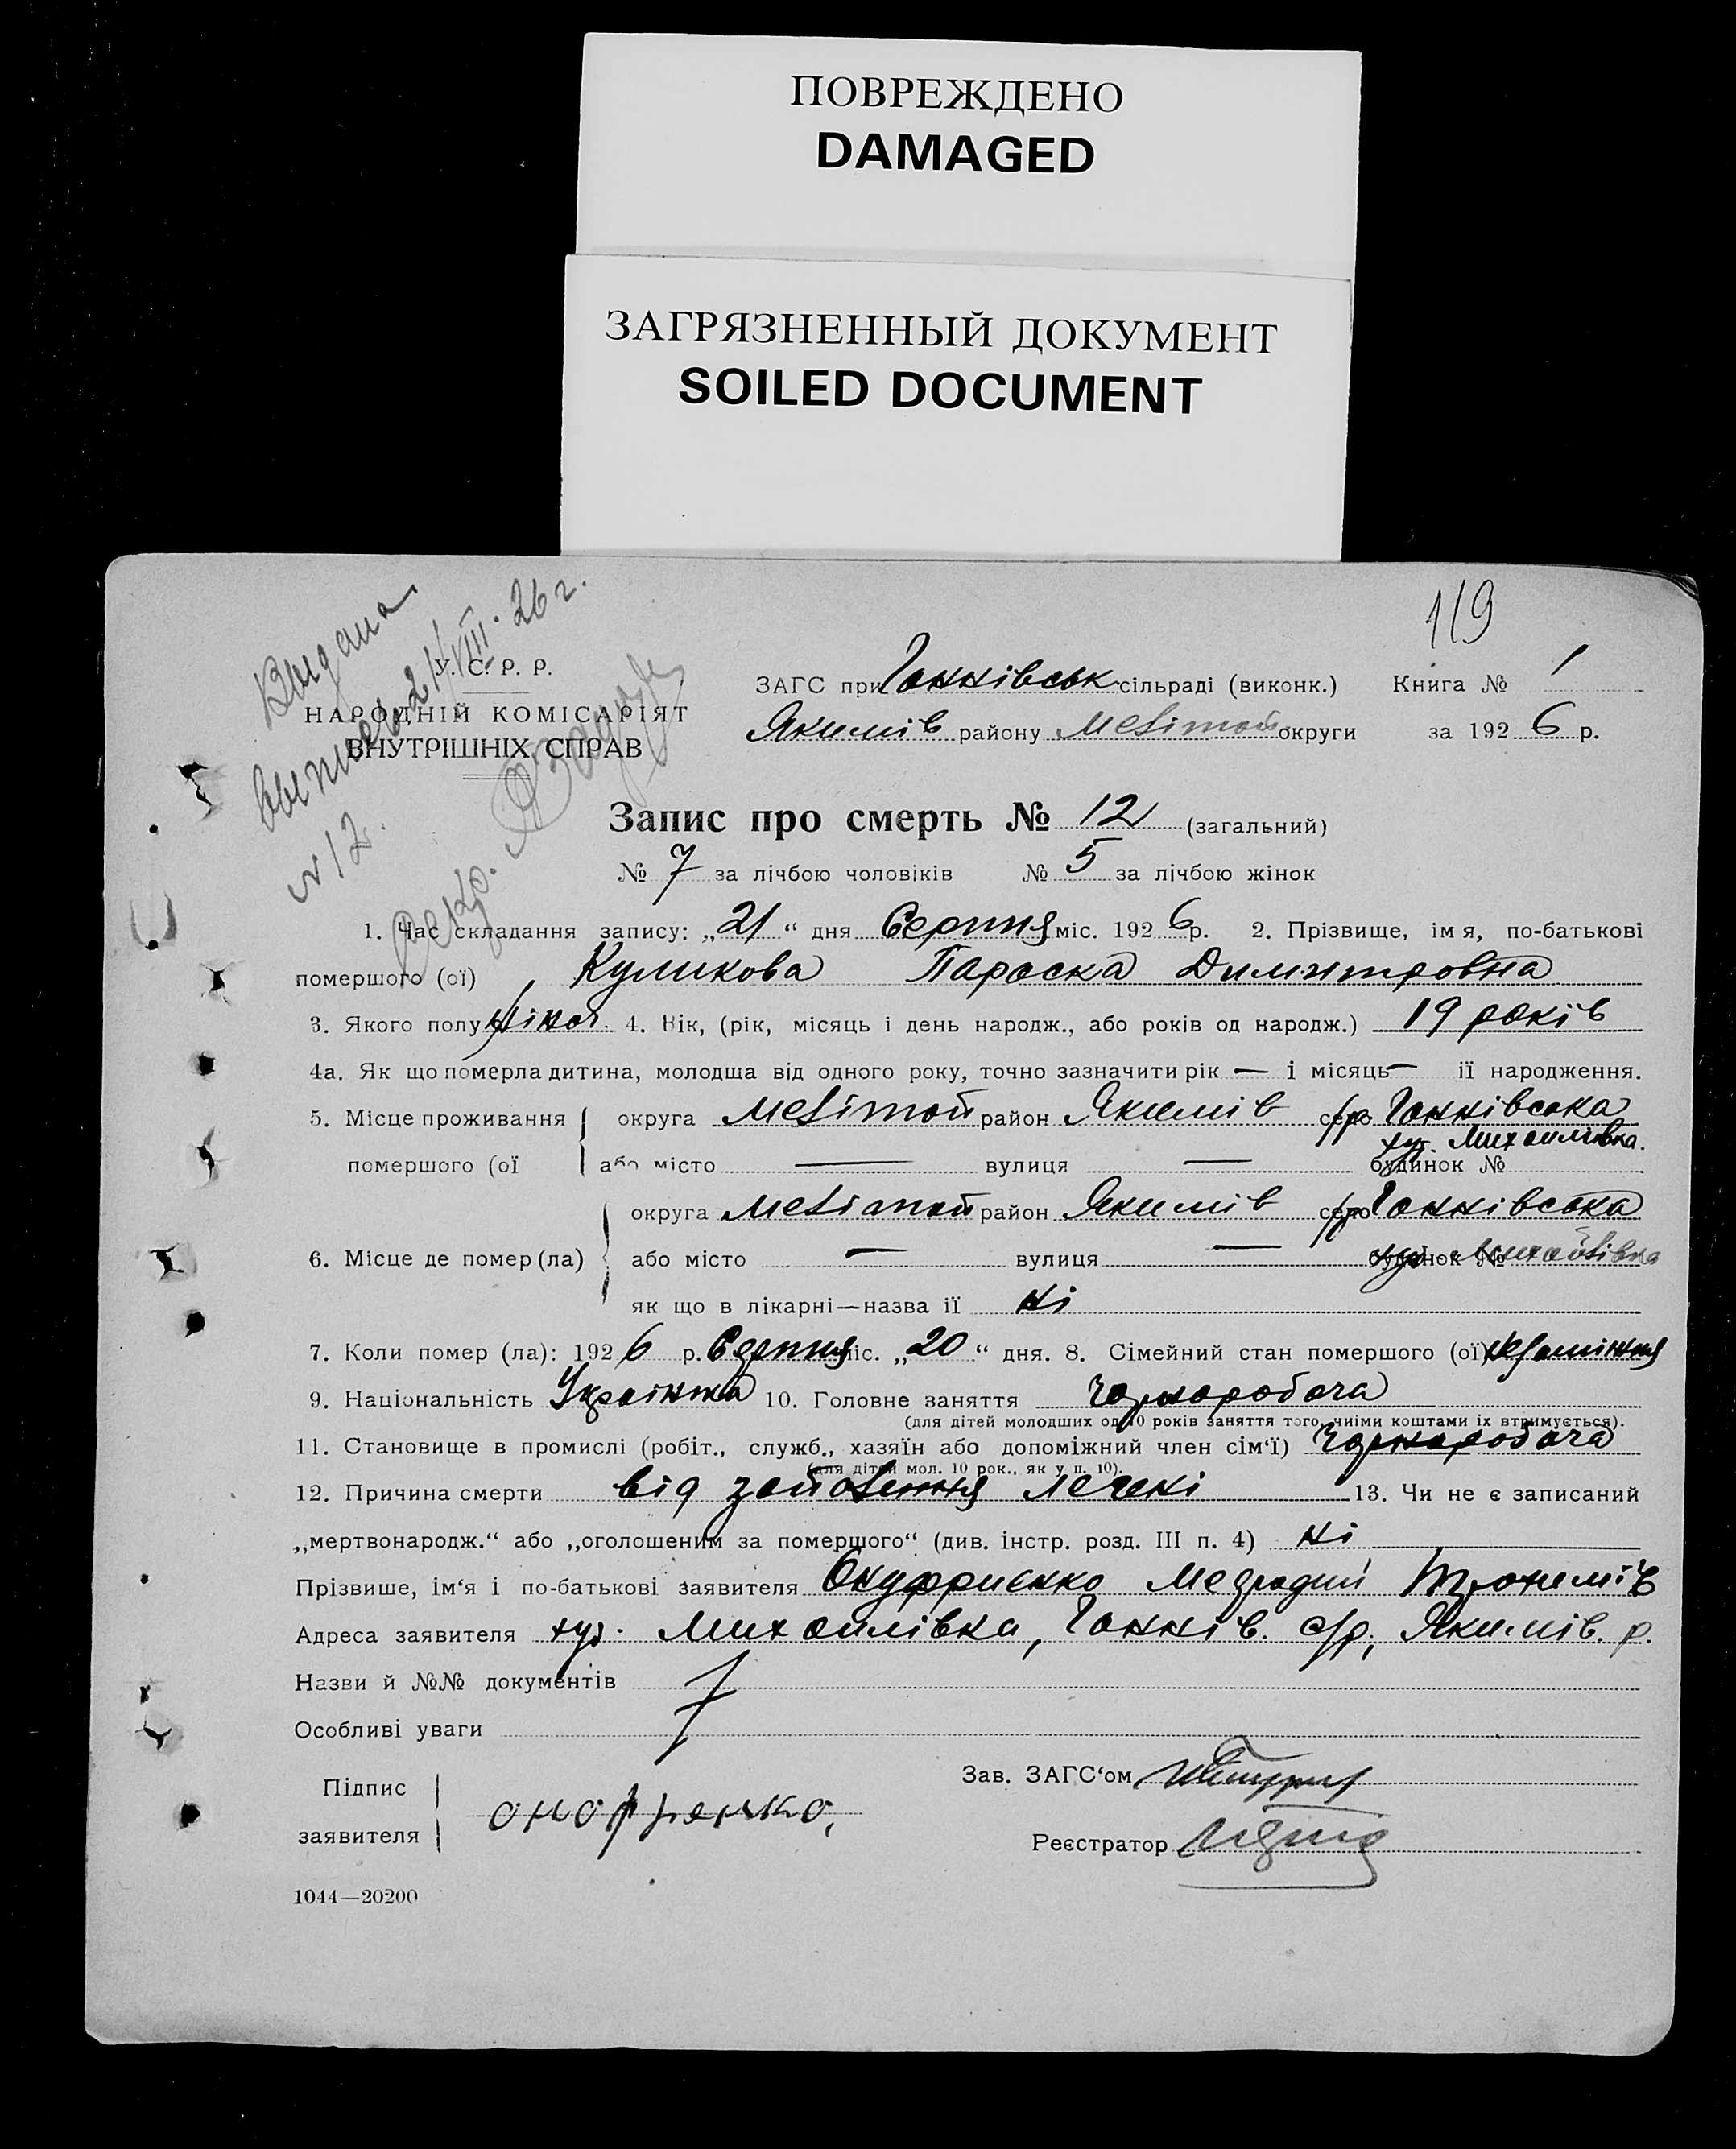 ПОВРЕЖДЕНО
DAMAGED
ЗАГРЯЗНЕННЫЙ ДОКУМЕНТ
SOILED DOCUMENT
119
Выдана
выпись 21/VIII·26 г.
№ 12.
У. С. Р. Р.
НАРОДНІЙ КОМІСАРІЯТ
ВНУТРІШНІХ СПРАВ
ЗАГС при Ганнівськ сільраді (виконк.) Книга № 1
Якимів району Мелітоп округи за 1926 р.
Запис про смерть № 12 (загальний)
№ 7 за лічбою чоловіків № 5 за лічбою жінок
1. Час складання запису: „21“ дня Серпня міс. 1926 р. 2. Прізвище, ім я, по-батькові
помершого (ої) Куликова Параска Димитровна
3. Якого полу жіноч. 4. Вік, (рік, місяць і день народж., або років од народж.) 19 років
4а. Як що померла дитина, молодша від одного року, точно зазначити рік — і місяць — її народження.
5. Місце проживання округа Мелітоп район Якимів село с/р Ганнівська
хут. Михайлівка.
помершого (ої або місто — вулиця — будинок №
округа Мелітоп район Якимів село с/р Ганнівська
6. Місце де помер (ла) або місто — вулиця — будинок № хут. Михайлівка
як що в лікарні—назва її ні
7. Коли помер (ла): 1926 р. Серпня міс. „20“ дня. 8. Сімейний стан помершого (ої)
9. Національність Українка 10. Головне заняття чорнороботча
(для дітей молодших од 10 років заняття того, чиїми коштами їх втримується).
11. Становище в промислі (робіт., служб., хазяїн або допоміжний член сім‘ї) чорноробоча
(для дітей мол. 10 рок., як у п. 10).
12. Причина смерти від запалення легені 13. Чи не є записаний
„мертвонародж.“ або „оголошеним за помершого“ (див. інстр. розд. III п. 4) ні
Прізвише, ім‘я і по-батькові заявителя Онуфриєнко
Адреса заявителя хут. Михайлівка, Ганнів. с/р, Якимів. р.
Назви й №№ документів
Особливі уваги
Підпис
заявителя онофрієнко
Зав. ЗАГС‘ом
Реєстратор
1044—20200